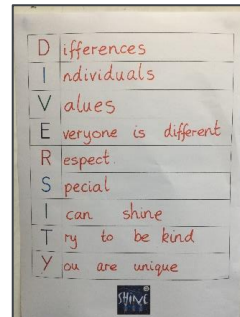 Differences
Individuals
Values
Everyone is different
Respect.
Special
I can shine
Try to be kind
You are unique
SHINE